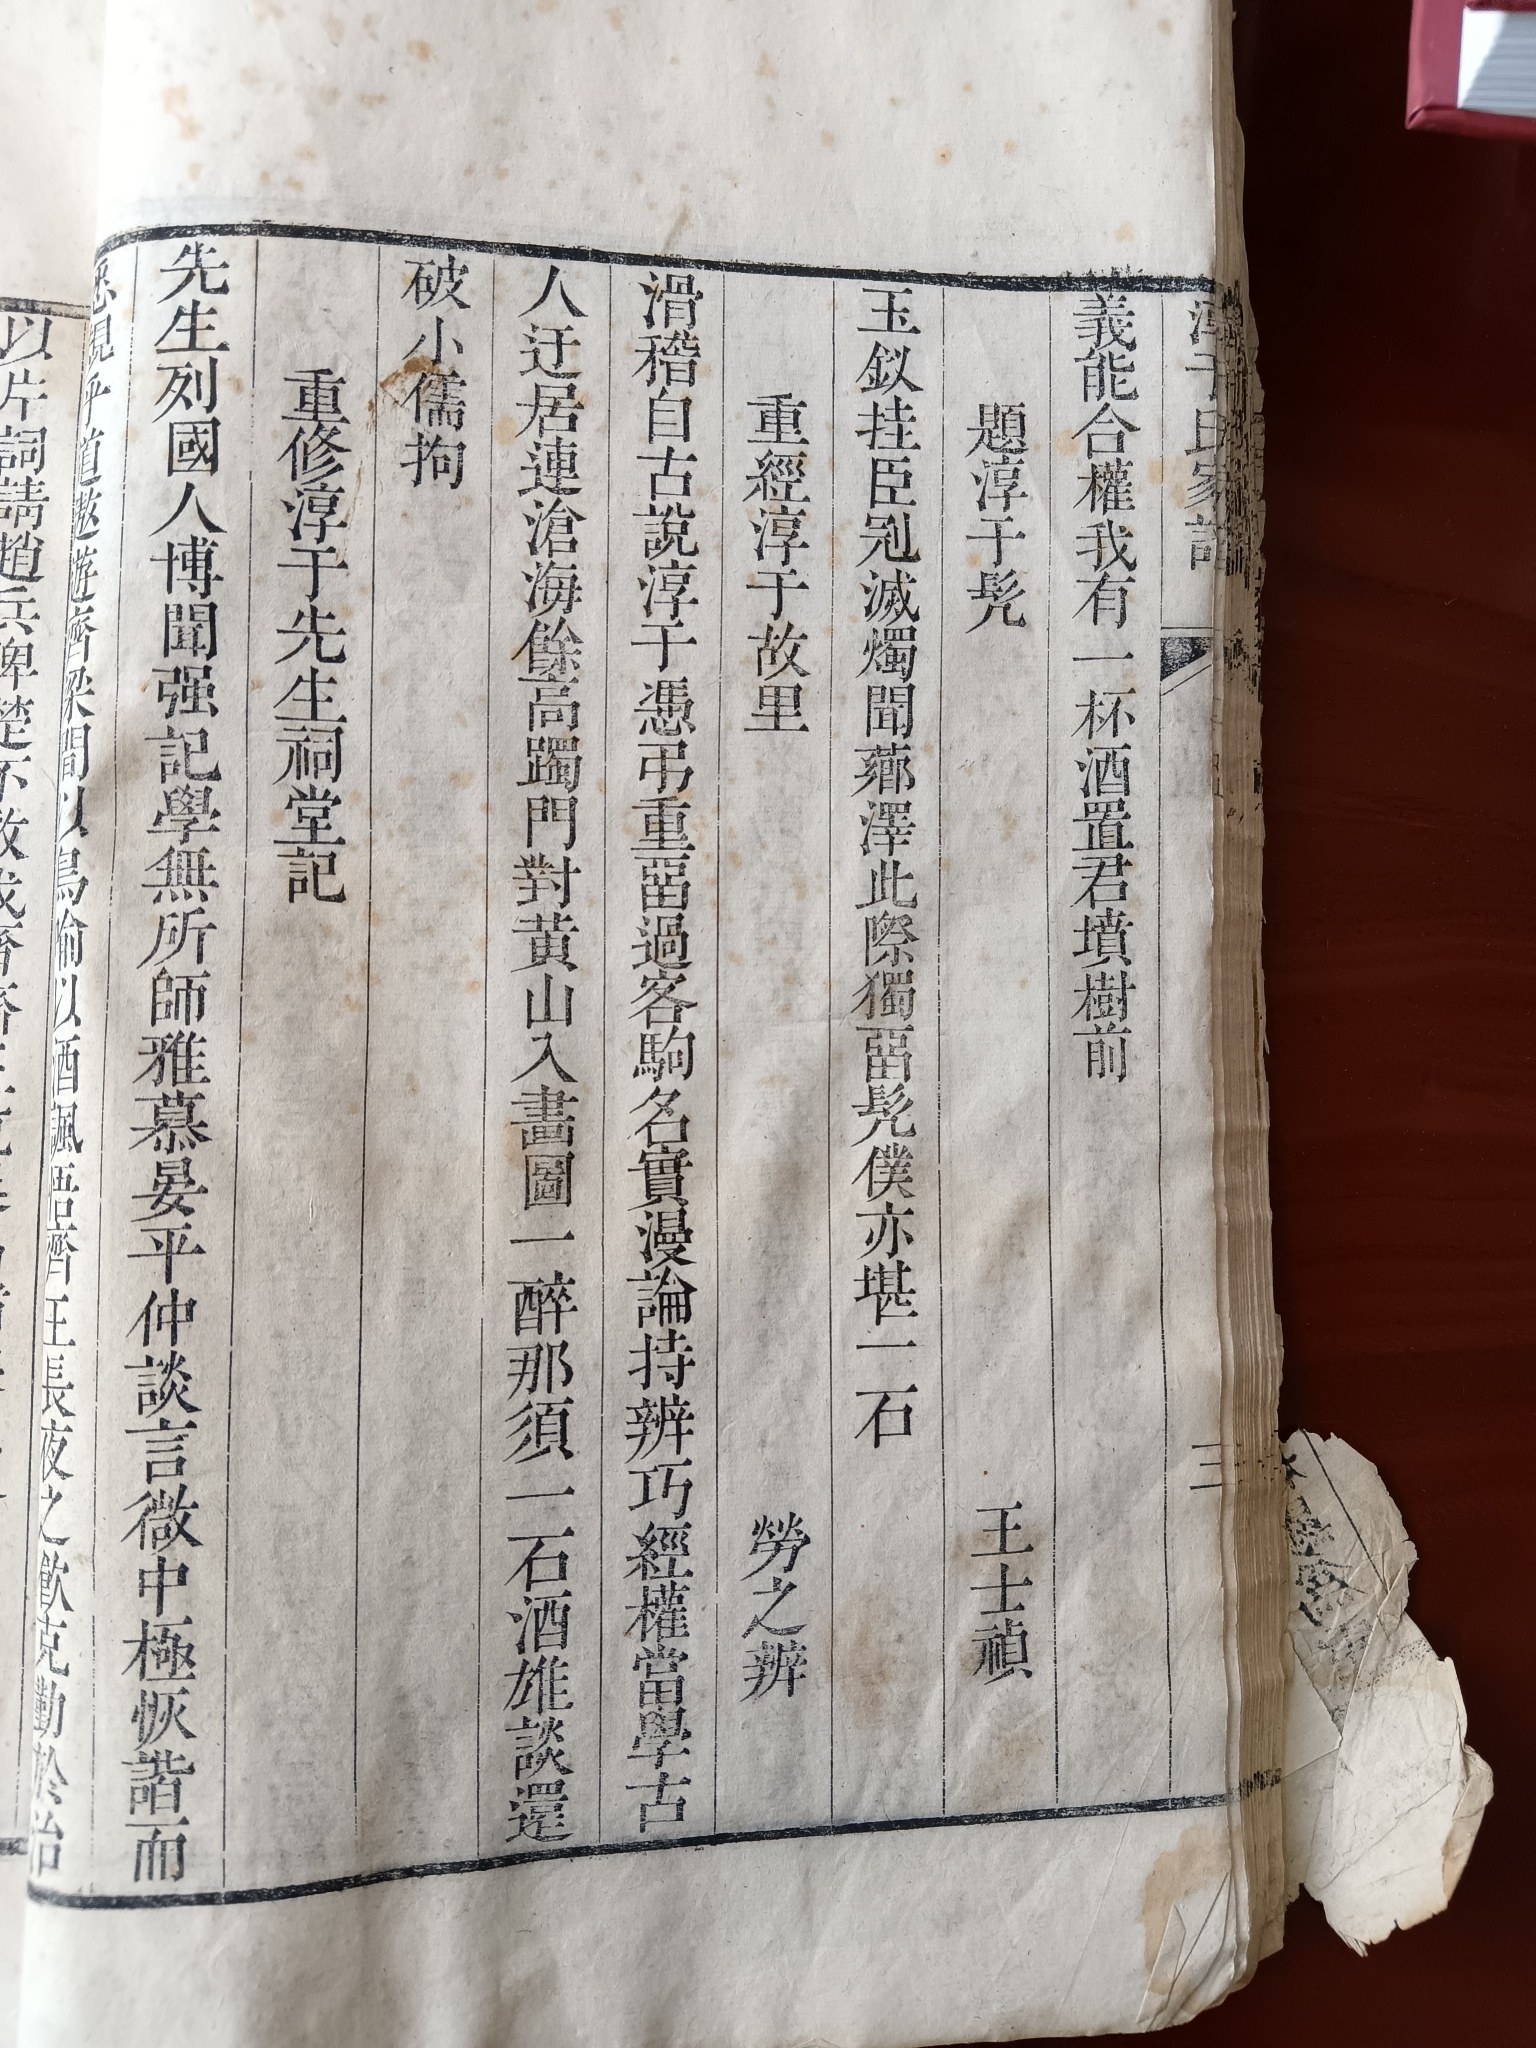 淳于氏家譜
三
義能合權我有一杯酒置君墳樹前
題淳于髠 王士禎
玉釵挂臣冠滅燭聞薌澤此際獨畱髠僕亦堪一石
重經淳于故里 勞之辨
滑稽自古說淳于憑弔重畱過客駒名實漫論持辨巧經權當學古
人迂居連滄海餘高躅門對黃山入畫圖一醉那須一石酒雄談還
破小儒拘
重修淳于先生祠堂記
先生列國人博聞强記學無所師雅慕晏平仲談言微中極恢諧而
悉規乎道遨遊齊梁間以鳥喻以酒諷悟齊王長夜之歡克勤於治
以片詞請趙兵俾楚不敢伐齊